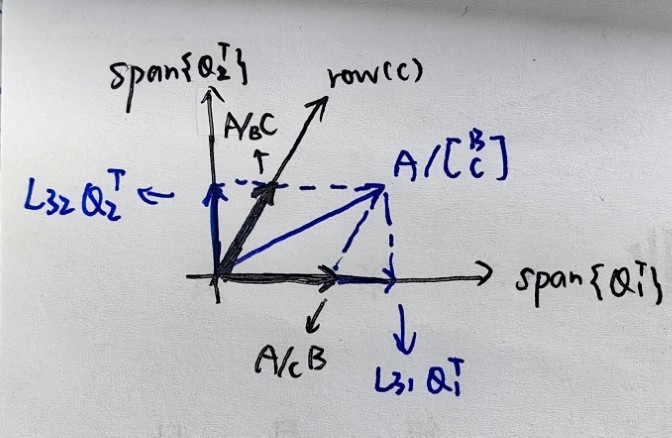 span{Q₂ᵀ}
row(C)
A/_B C
A/[B C]
L₃₂Q₂ᵀ
span{Q₁ᵀ}
A/_C B
L₃₁Q₁ᵀ